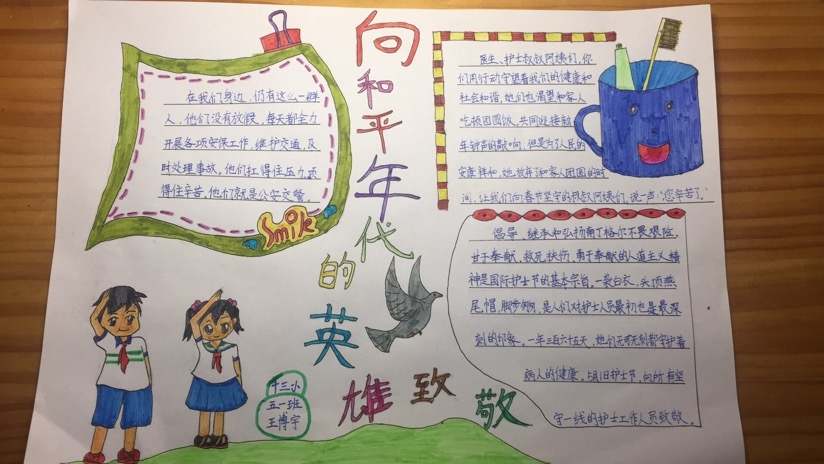 向和平年代的英雄致敬
在我们身边,仍有这么一群
人,他们没有放假,每天都全力
开展各项安保工作,维护交通,及
时处理事故,他们扛得住压力,顶
得住辛苦,他们就是公安交警。
Smile
医生、护士叔叔阿姨们,你
们用行动守望着我们的健康和
社会和谐,她们也渴望和家人
吃顿团圆饭,共同迎接新
年钟声的敲响,但是为了人民的
安康祥和,她放弃了和家人团圆的时
间,让我们向春节坚守的叔叔阿姨们,说一声"您辛苦了"
倡导、继承和弘扬南丁格尔不畏艰险、
甘于奉献、救死扶伤、勇于奉献的人道主义精
神是国际护士节的基本宗旨,一袭白衣,头顶燕
尾帽,脚步,是人们对护士人员最初也是最深
刻的印象。一年三百六十五天,她们无时无刻都守护着
病人的健康,护士节,向所有坚
守一线的护士工作人员致敬。
十三小
五一班
王博宇